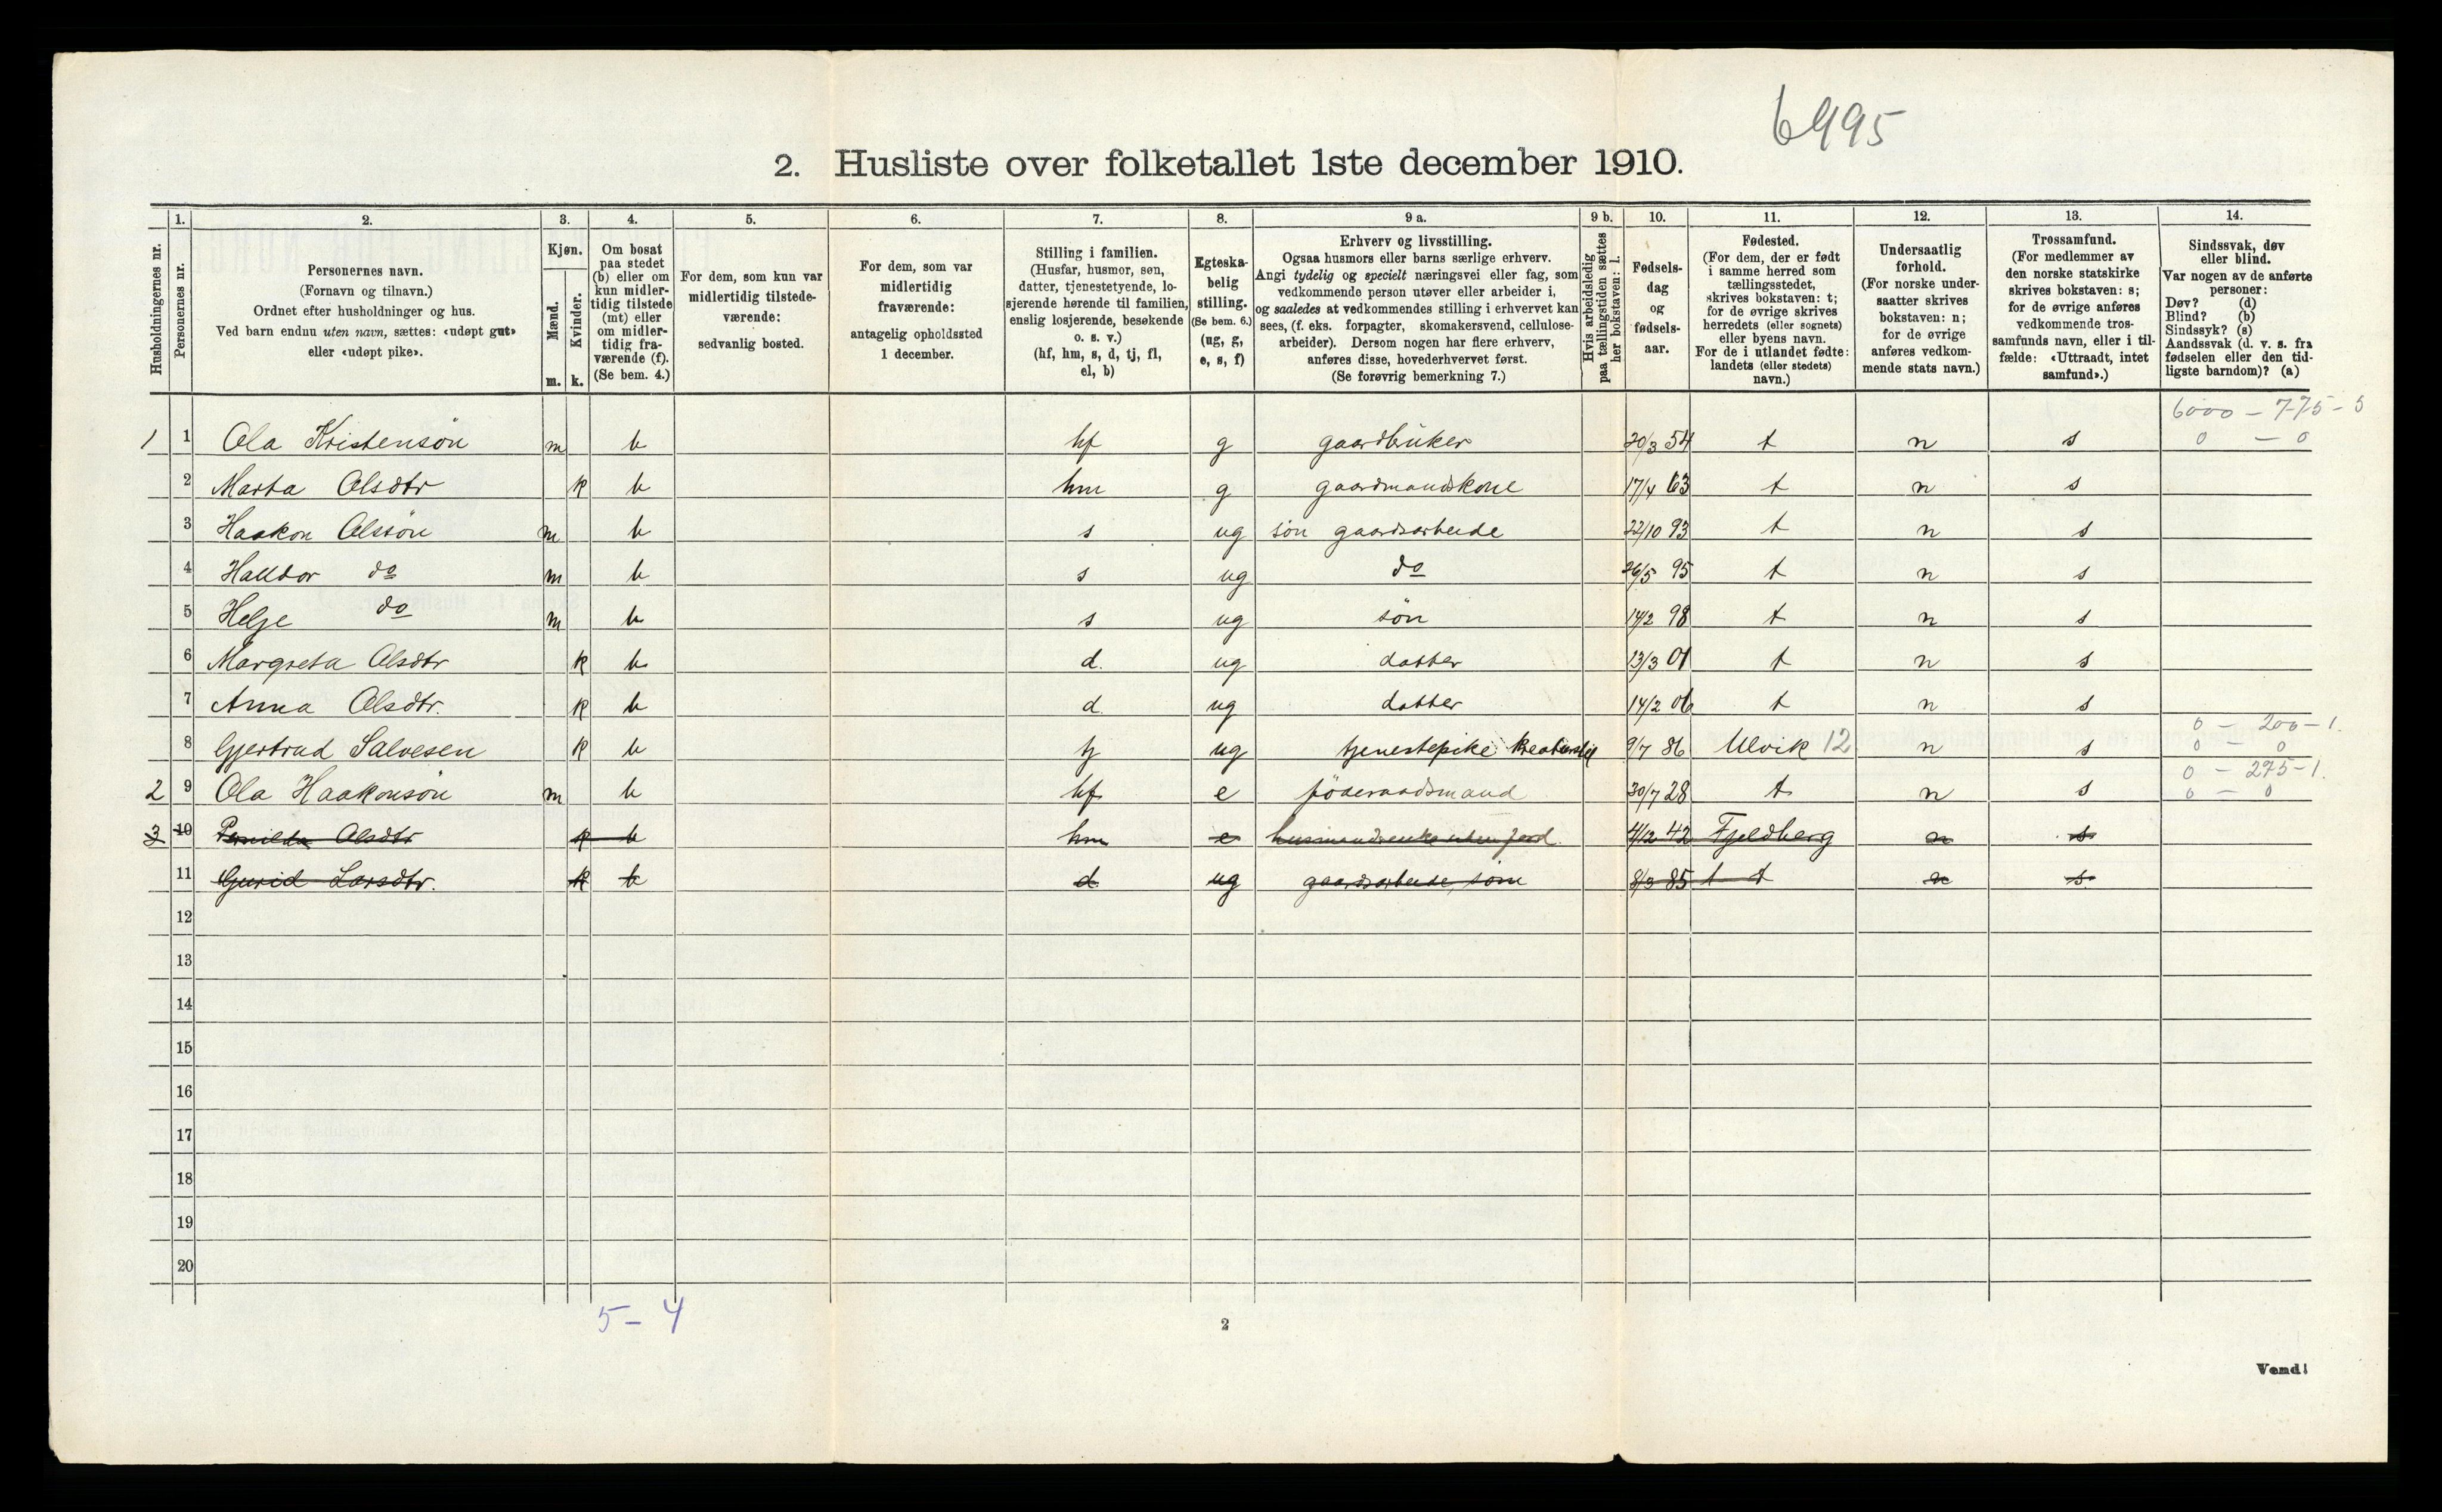 6995
2. Husliste over folketallet 1ste december 1910.
Husholdningernes nr.
1. Personernes nr.
2. Personernes navn. (Fornavn og tilnavn.) Ordnet efter husholdninger og hus. Ved barn endnu uten navn, sættes: «udøpt gut» eller «udøpt pike».
3. Kjøn. Mænd. m. Kvinder. k.
4. Om bosat paa stedet (b) eller om kun midlertidig tilstede (mt) eller om midlertidig fraværende (f). (Se bem. 4.)
5. For dem, som kun var midlertidig tilstedeværende: sedvanlig bosted.
6. For dem, som var midlertidig fraværende: antagelig opholdssted 1 december.
7. Stilling i familien. (Husfar, husmor, søn, datter, tjenestetyende, losjerende hørende til familien, enslig losjerende, besøkende o. s. v.) (hf, hm, s, d, tj, fl, el, b)
8. Egteskabelig stilling. (Se bem. 6.) (ug, g, e, s, f)
9 a. Erhverv og livsstilling. Ogsaa husmors eller barns særlige erhverv. Angi tydelig og specielt næringsvei eller fag, som vedkommende person utøver eller arbeider i, og saaledes at vedkommendes stilling i erhvervet kan sees, (f. eks. forpagter, skomakersvend, cellulosearbeider). Dersom nogen har flere erhverv, anføres disse, hovederhvervet først. (Se forøvrig bemerkning 7.)
9 b. Hvis arbeidsledig paa tællingstiden sættes her bokstaven: l.
10. Fødselsdag og fødselsaar.
11. Fødested. (For dem, der er født i samme herred som tællingsstedet, skrives bokstaven: t; for de øvrige skrives herredets (eller sognets) eller byens navn. For de i utlandet fødte: landets (eller stedets) navn.)
12. Undersaatlig forhold. (For norske undersaatter skrives bokstaven: n; for de øvrige anføres vedkommende stats navn.)
13. Trossamfund. (For medlemmer av den norske statskirke skrives bokstaven: s; for de øvrige anføres vedkommende trossamfunds navn, eller i tilfælde: «Uttraadt, intet samfund».)
14. Sindssvak, døv eller blind. Var nogen av de anførte personer: Døv? (d) Blind? (b) Sindssyk? (s) Aandssvak (d. v. s. fra fødselen eller den tidligste barndom)? (a)
6000 - 775 - 5
1 1 Ola Kristensön m b hf g gaardbruker 20/3 54 t n s 0 - 0
2 Marta Olsdtr k b hm g gaardmandskone 17/4 63 t n s
3 Haakon Olssön m b s ug sön gaardsarbeide 22/10 93 t n s
4 Halldor do m b s ug do 26/5 95 t n s
5 Helge do m b s ug sön 14/2 98 t n s
6 Margreta Olsdtr k b d. ug datter 13/3 01 t n s
7 Anna Olsdtr. k b d. ug datter 14/2 06 t n s
0 - 200 - 1.
8 Gjertrud Salvesen k b tj ug tjenestepike kreaturstel 9/7 86 Ulvik 12 n s 0 - 0
0 - 275 - 1.
2 9 Ola Haakonsön m b hf e föderaadsmand 30/7 28 t n s 0 - 0
3 10 Pernilda Olsdtr k b hm e husmandsenke uten jord. 4/12 42 Fjeldberg n s
11 Gurid Larsdtr. k b d ug gaardsarbeide, söm 8/3 85 t t n s
12
13
14
15
16
17
18
19
20
5 - 4
2
Vend!